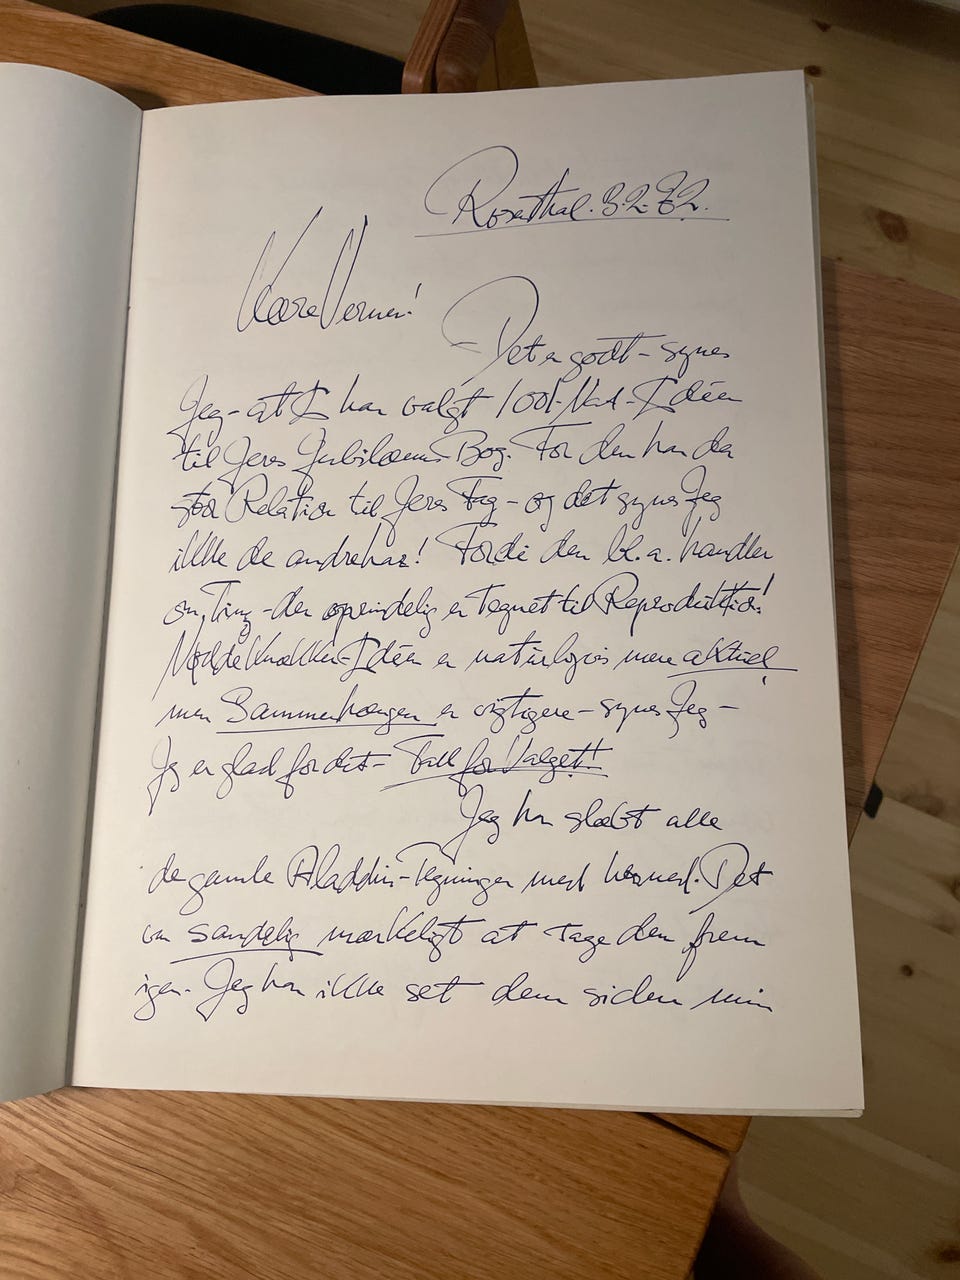 Rosenthal. 3.2.72.
Kære Verner!
Det er godt – synes
Jeg – at I har valgt 1001-Nat-Idéen
til Jeres Jubilæums Bog. For den har da
stor Relation til Jeres Fag – og det synes Jeg
ikke de andre har! Fordi den bl.a. handler
om Ting – der oprindelig er Tegnet til Reproduktion!
Nøddeknækker-Idéen er naturligvis mere aktuel
men Sammenhængen er vigtigere – synes Jeg –
Jeg er glad for det – Tak for Valget!!
Jeg har slæbt alle
de gamle Aladdin-Tegninger med herned. Det
var sandelig mærkeligt at tage dem frem
igen. Jeg har ikke set dem siden min